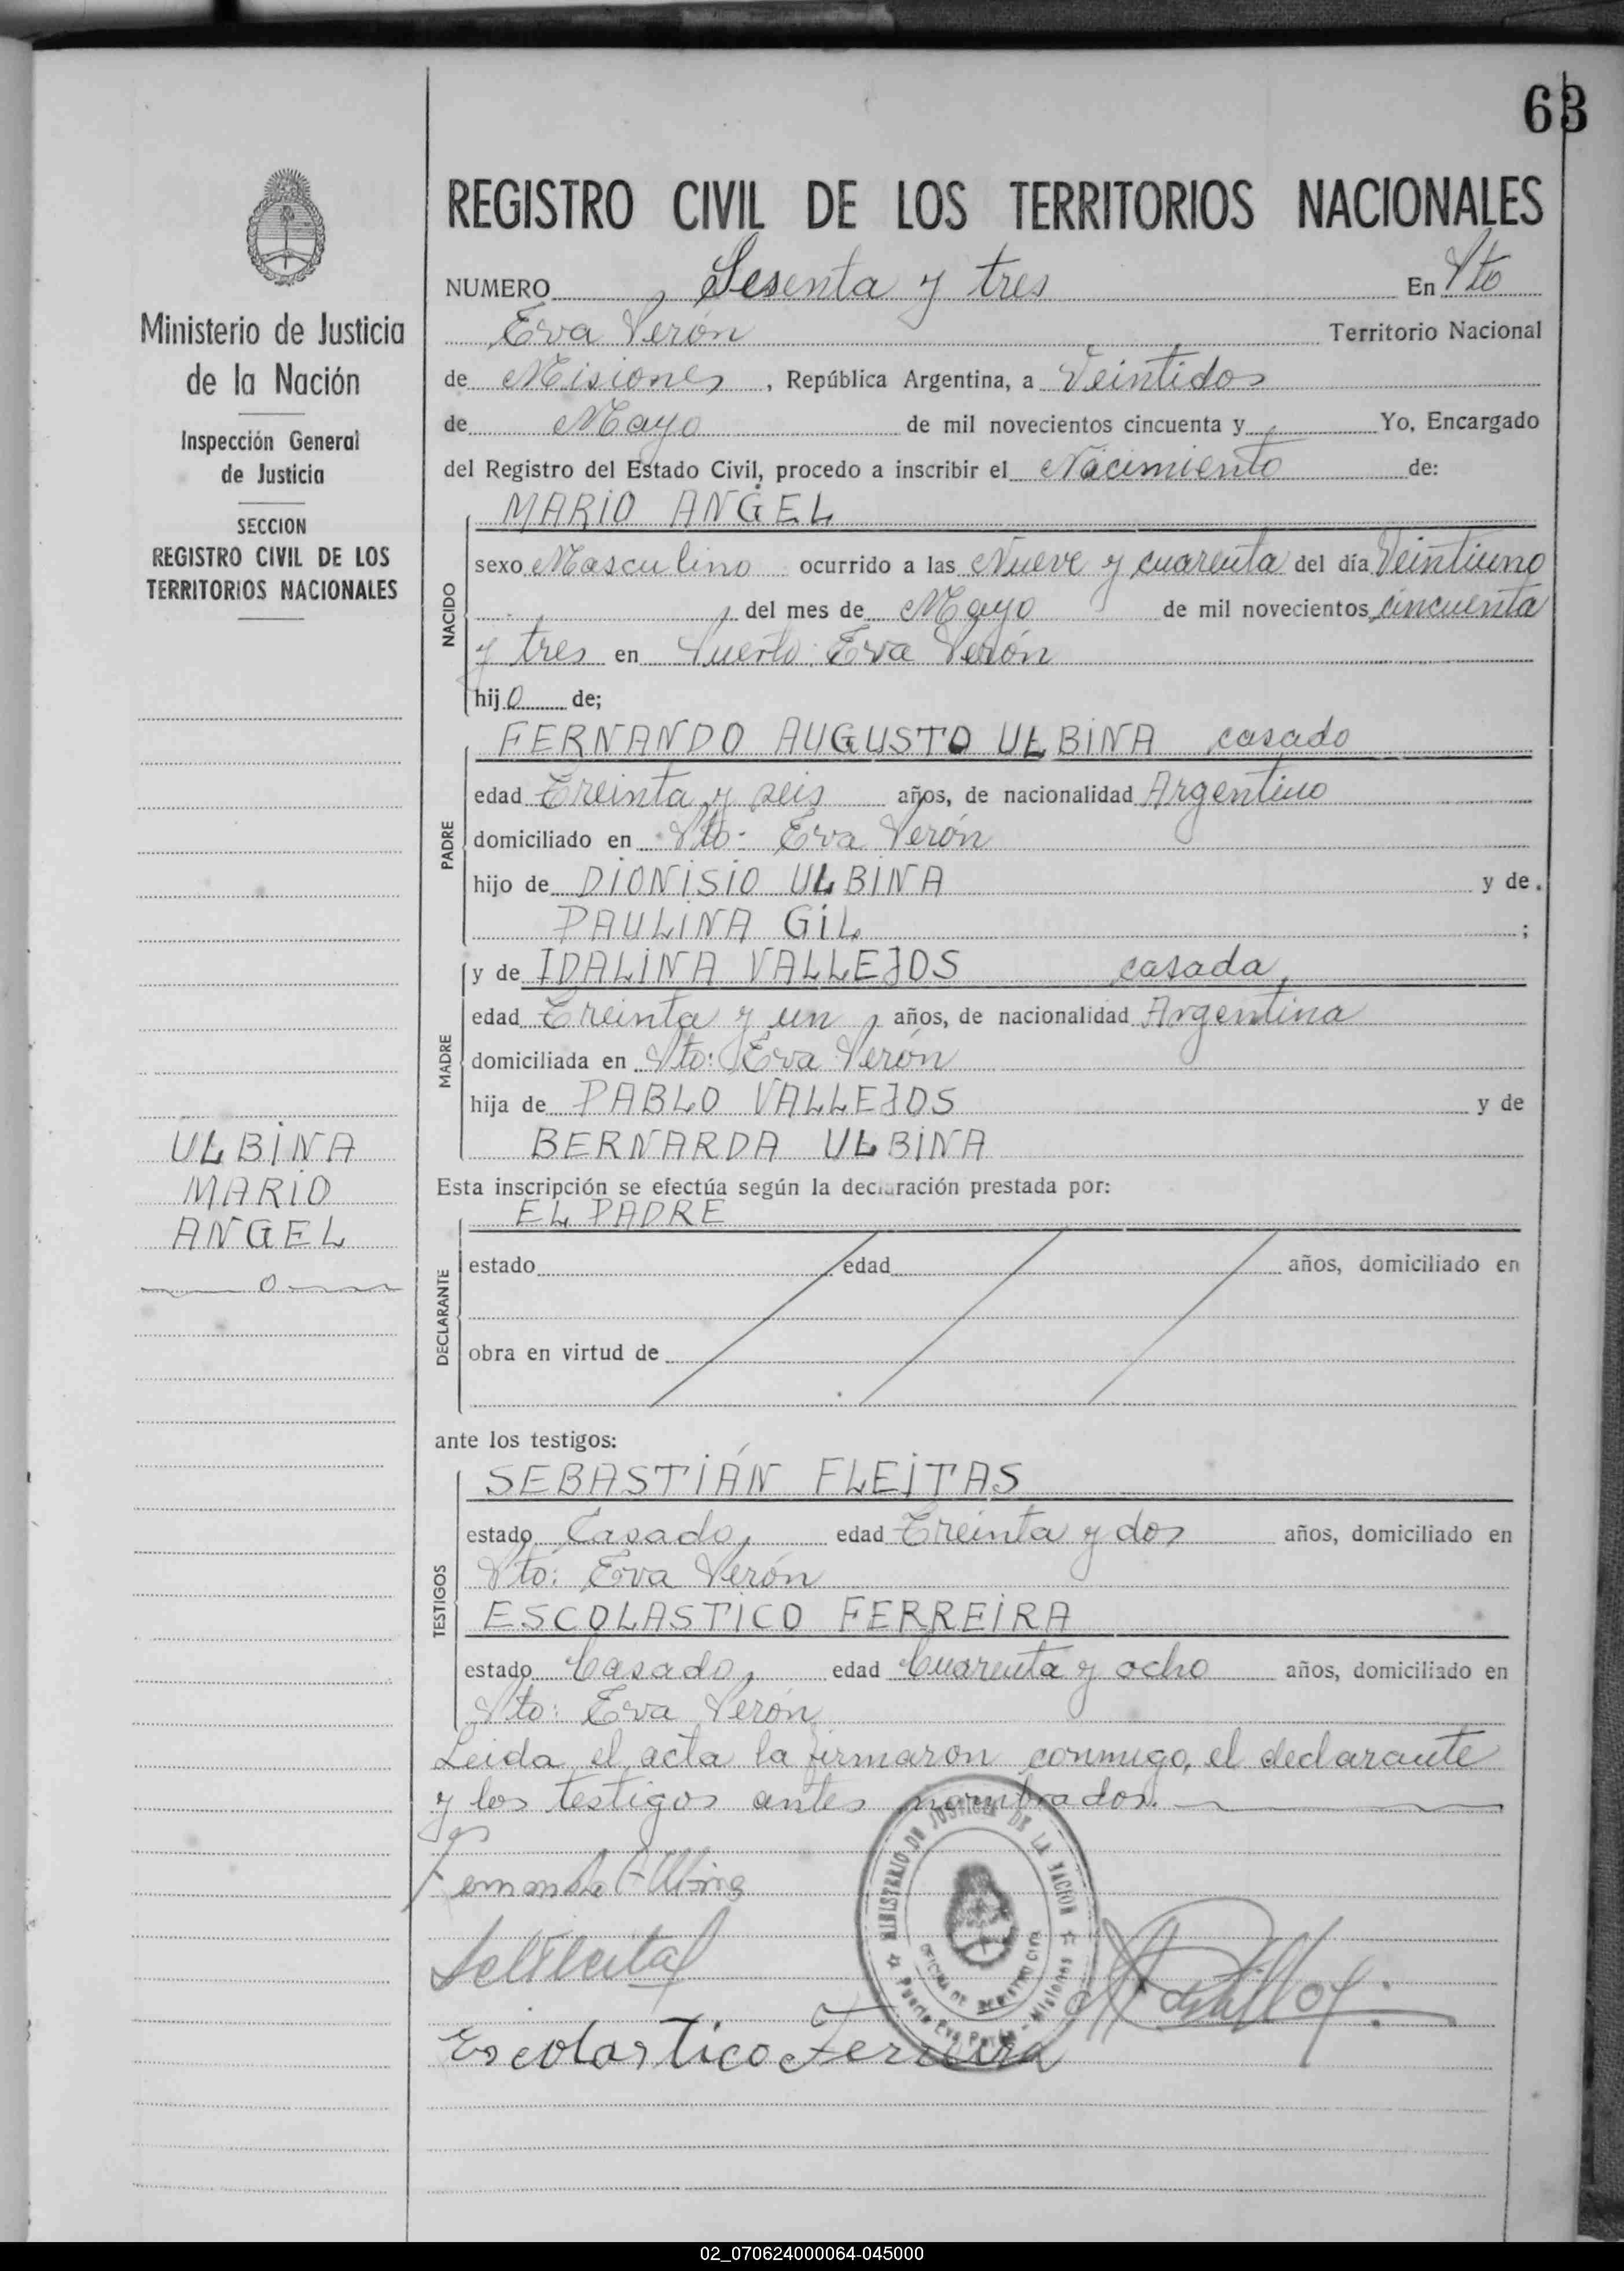 63
REGISTRO CIVIL DE LOS TERRITORIOS NACIONALES
NUMERO Sesenta y tres En Pto
Eva Perón Territorio Nacional
de Misiones, República Argentina, a Veintidos
de Mayo de mil novecientos cincuenta y Yo, Encargado
del Registro del Estado Civil, procedo a inscribir el Nacimiento de:
MARIO ANGEL
NACIDO
sexo Masculino ocurrido a las Nueve y cuarenta del día Veintiuno
del mes de Mayo de mil novecientos cincuenta
y tres en Puerto: Eva Perón
hijo de;
FERNANDO AUGUSTO ULBINA casado
PADRE
edad Treinta y seis años, de nacionalidad Argentino
domiciliado en Pto- Eva Perón
hijo de DIONISIO ULBINA y de
PAULINA GIL ;
MADRE
y de IDALINA VALLEJOS casada,
edad Treinta y un años, de nacionalidad Argentina
domiciliada en Pto: Eva Perón
hija de PABLO VALLEJOS y de
BERNARDA ULBINA
Esta inscripción se efectúa según la declaración prestada por:
EL PADRE
DECLARANTE
estado edad años, domiciliado en
obra en virtud de
ante los testigos:
TESTIGOS
SEBASTIÁN FLEITAS
estado Casado, edad Treinta y dos años, domiciliado en
Pto: Eva Perón
ESCOLASTICO FERREIRA
estado Casado, edad Cuarenta y ocho años, domiciliado en
Pto: Eva Perón
Leida el acta la firmaron conmigo, el declarante
y los testigos antes nombrados.
Escolastico Ferreira
MINISTERIO DE JUSTICIA DE LA NACION
OFICINA DE REGISTRO CIVIL
Puerto Eva Perón - Misiones
Ministerio de Justicia
de la Nación
Inspección General
de Justicia
SECCION
REGISTRO CIVIL DE LOS
TERRITORIOS NACIONALES
ULBINA
MARIO
ANGEL
02_070624000064-045000